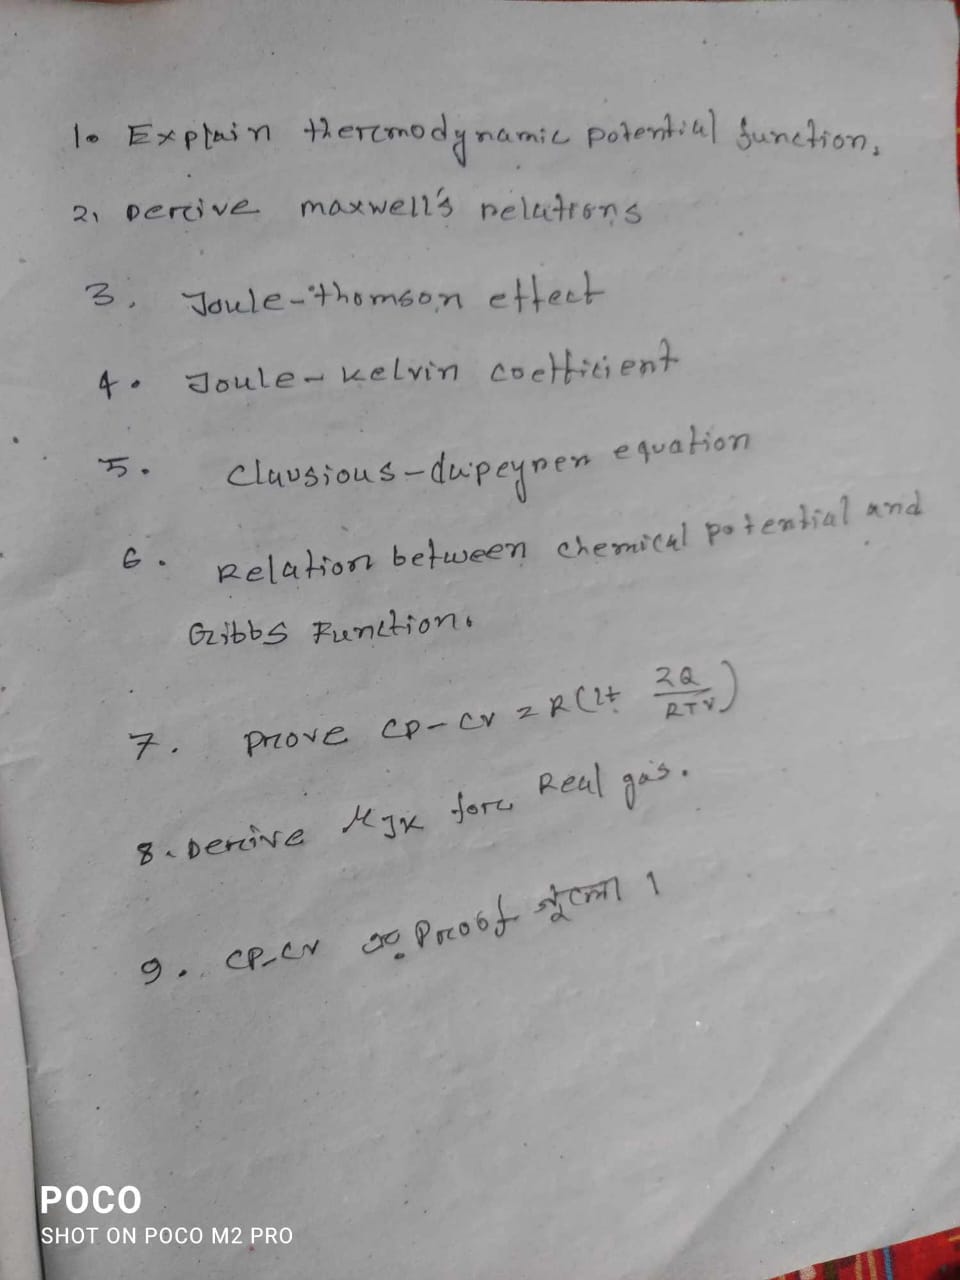 1. Explain thermodynamic potential function.
2, Derive maxwell's relations
3. Joule-thomson effect
4. Joule-kelvin coefficient
5. Clausious-dupeyren equation
6. Relation between chemical potential and
Gibbs Function.
7. prove CP-CV = R(1+ 2a/RTV)
8. Derive μJK for Real gas.
9. CP-CV এর Proof গুলো।
POCO
SHOT ON POCO M2 PRO